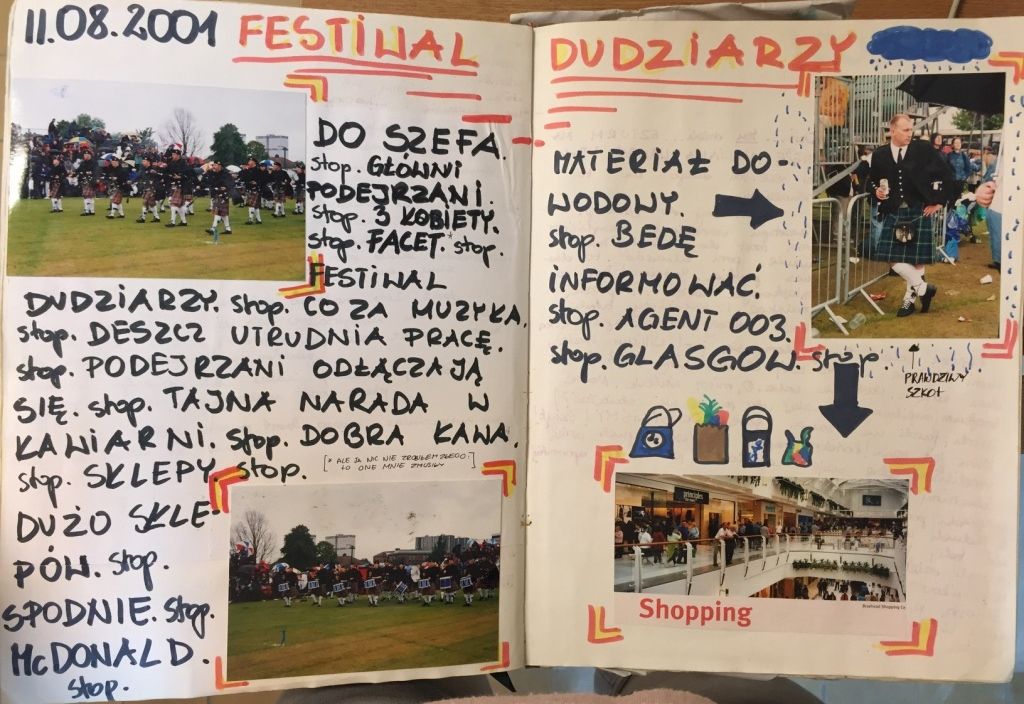 11.08.2001 FESTIWAL
DO SZEFA.
stop. GŁÓWNI
PODEJRZANI.
stop. 3 KOBIETY.
stop. FACET.* stop.
FESTIWAL
DUDZIARZY. stop. CO ZA MUZYKA.
stop. DESZCZ UTRUDNIA PRACĘ.
stop. PODEJRZANI ODŁĄCZAJĄ
SIĘ. stop. TAJNA NARADA W
KAWIARNI. stop. DOBRA KAWA.
stop. SKLEPY. stop.
[* ALE JA NIC NIE ZROBIŁEM ZŁEGO!
TO ONE MNIE ZMUSIŁY
DUŻO SKLE-
PÓW. stop.
SPODNIE. stop.
McDONALD.
stop.
DUDZIARZY
MATERIAŁ DO-
WODOWY.
stop. BEDĘ
INFORMOWAĆ.
stop. AGENT 003.
stop. GLASGOW. stop.
PRAWDZIWY
SZKOT
principles
Shopping
Braehead Shopping Ce